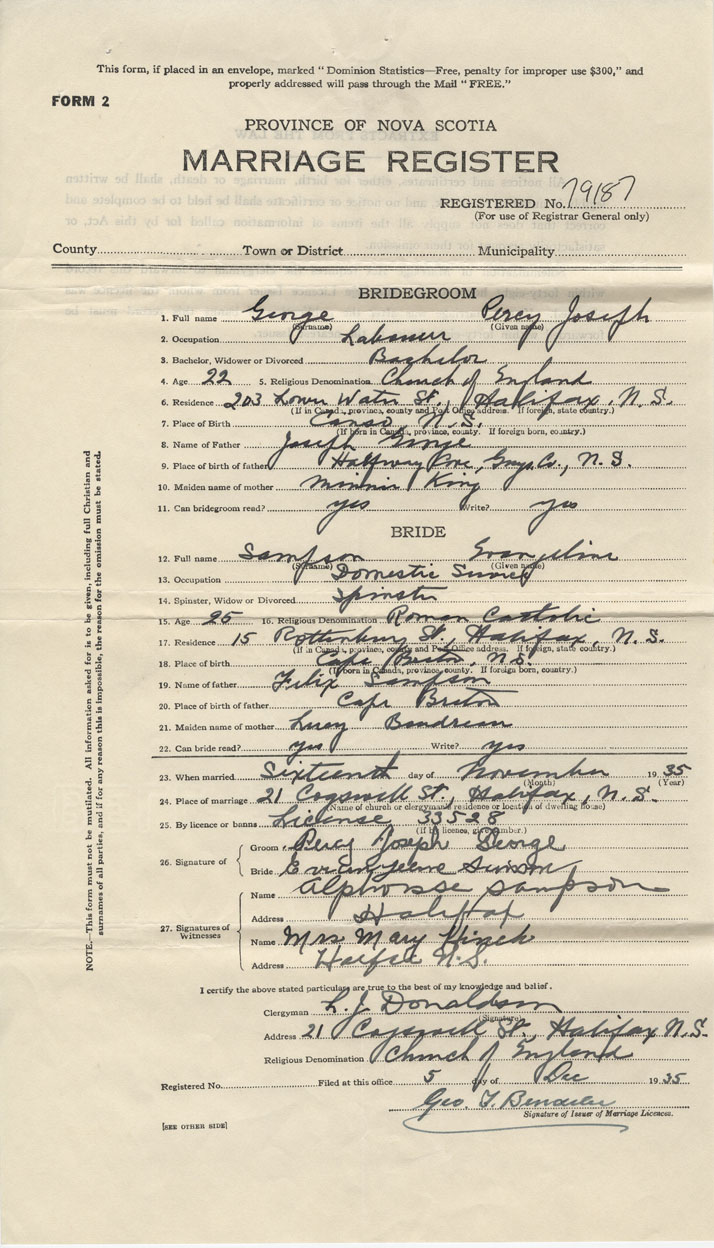 This form, if placed in an envelope, marked "Dominion Statistics—Free, penalty for improper use $300," and
properly addressed will pass through the Mail "FREE."
FORM 2
PROVINCE OF NOVA SCOTIA
MARRIAGE REGISTER
REGISTERED No. 79187
(For use of Registrar General only)
County Town or District Municipality
BRIDEGROOM
1. Full name George Percy Joseph
(Surname) (Given name)
2. Occupation Labourer
3. Bachelor, Widower or Divorced Bachelor
4. Age 22 5. Religious Denomination Church of England
6. Residence 203 Lower Water St., Halifax, N.S.
(If in Canada, province, county and Post Office address. If foreign, state country.)
7. Place of Birth Canso, N.S.
(If born in Canada, province, county. If foreign born, country.)
8. Name of Father Joseph George
9. Place of birth of father Halfway Cove, Guys. Co., N.S.
10. Maiden name of mother Minnie King
11. Can bridegroom read? yes Write? yes
BRIDE
12. Full name Sampson Evangeline
(Surname) (Given name)
13. Occupation Domestic Service
14. Spinster, Widow or Divorced Spinster
15. Age 25 16. Religious Denomination Roman Catholic
17. Residence 15 Rottenburg St., Halifax, N.S.
(If in Canada, province, county and Post Office address. If foreign, state country.)
18. Place of birth Cape Breton, N.S.
(If born in Canada, province, county. If foreign born, country.)
19. Name of father Felix Sampson
20. Place of birth of father Cape Breton
21. Maiden name of mother Lucy Boudreau
22. Can bride read? yes Write? yes
23. When married Sixteenth day of November 1935
(Month) (Year)
24. Place of marriage 21 Cogswell St., Halifax, N.S.
(Name of church or clergyman's residence or location of dwelling house)
25. By licence or banns License 33528
(If by licence, give number.)
26. Signature of
Groom Percy Joseph George
Bride Evangeline
27. Signatures of Witnesses
Name Alphonsse Sampson
Address Halifax
Name Mrs Mary
Address Halfax N.S.
I certify the above stated particulars are true to the best of my knowledge and belief.
Clergyman L. J. Donaldson
(Signature)
Address 21 Cogswell St., Halifax N.S.
Religious Denomination Church of England
Registered No. Filed at this office 5 day of Dec 1935
Geo. F.
Signature of Issuer of Marriage Licences.
[SEE OTHER SIDE]
NOTE.—This form must not be mutilated. All information asked for is to be given, including full Christian and
surnames of all parties, and if for any reason this is impossible, the reason for the omission must be stated.